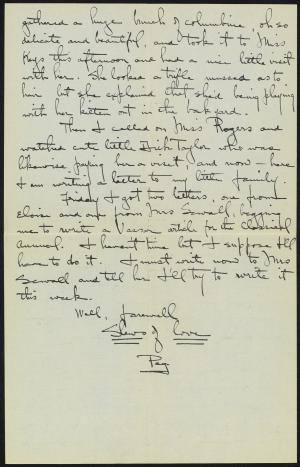 gathered a huge bunch of columbine, oh so
delicate and beautiful, and took it to Miss
Keys this afternoon and had a nice little visit
with her. She looked a trifle mussed as to
hair but she explained that she'd been playing
with her kitten out in the backyard.
Then I called on Miss Rogers and
watched cute little Taylor who was
likewise paying her a visit, and now - here
I am writing a letter to my little family
Friday I got two letters, one from
Eloise and one from Mrs Sewall, begging
me to write a article for the classical
annual. I haven't time but I suppose I'll
have to do it. I must write now to Mrs
Sewall and tell her I'll try to write it
this week.
Well, farewell
of love
Peg